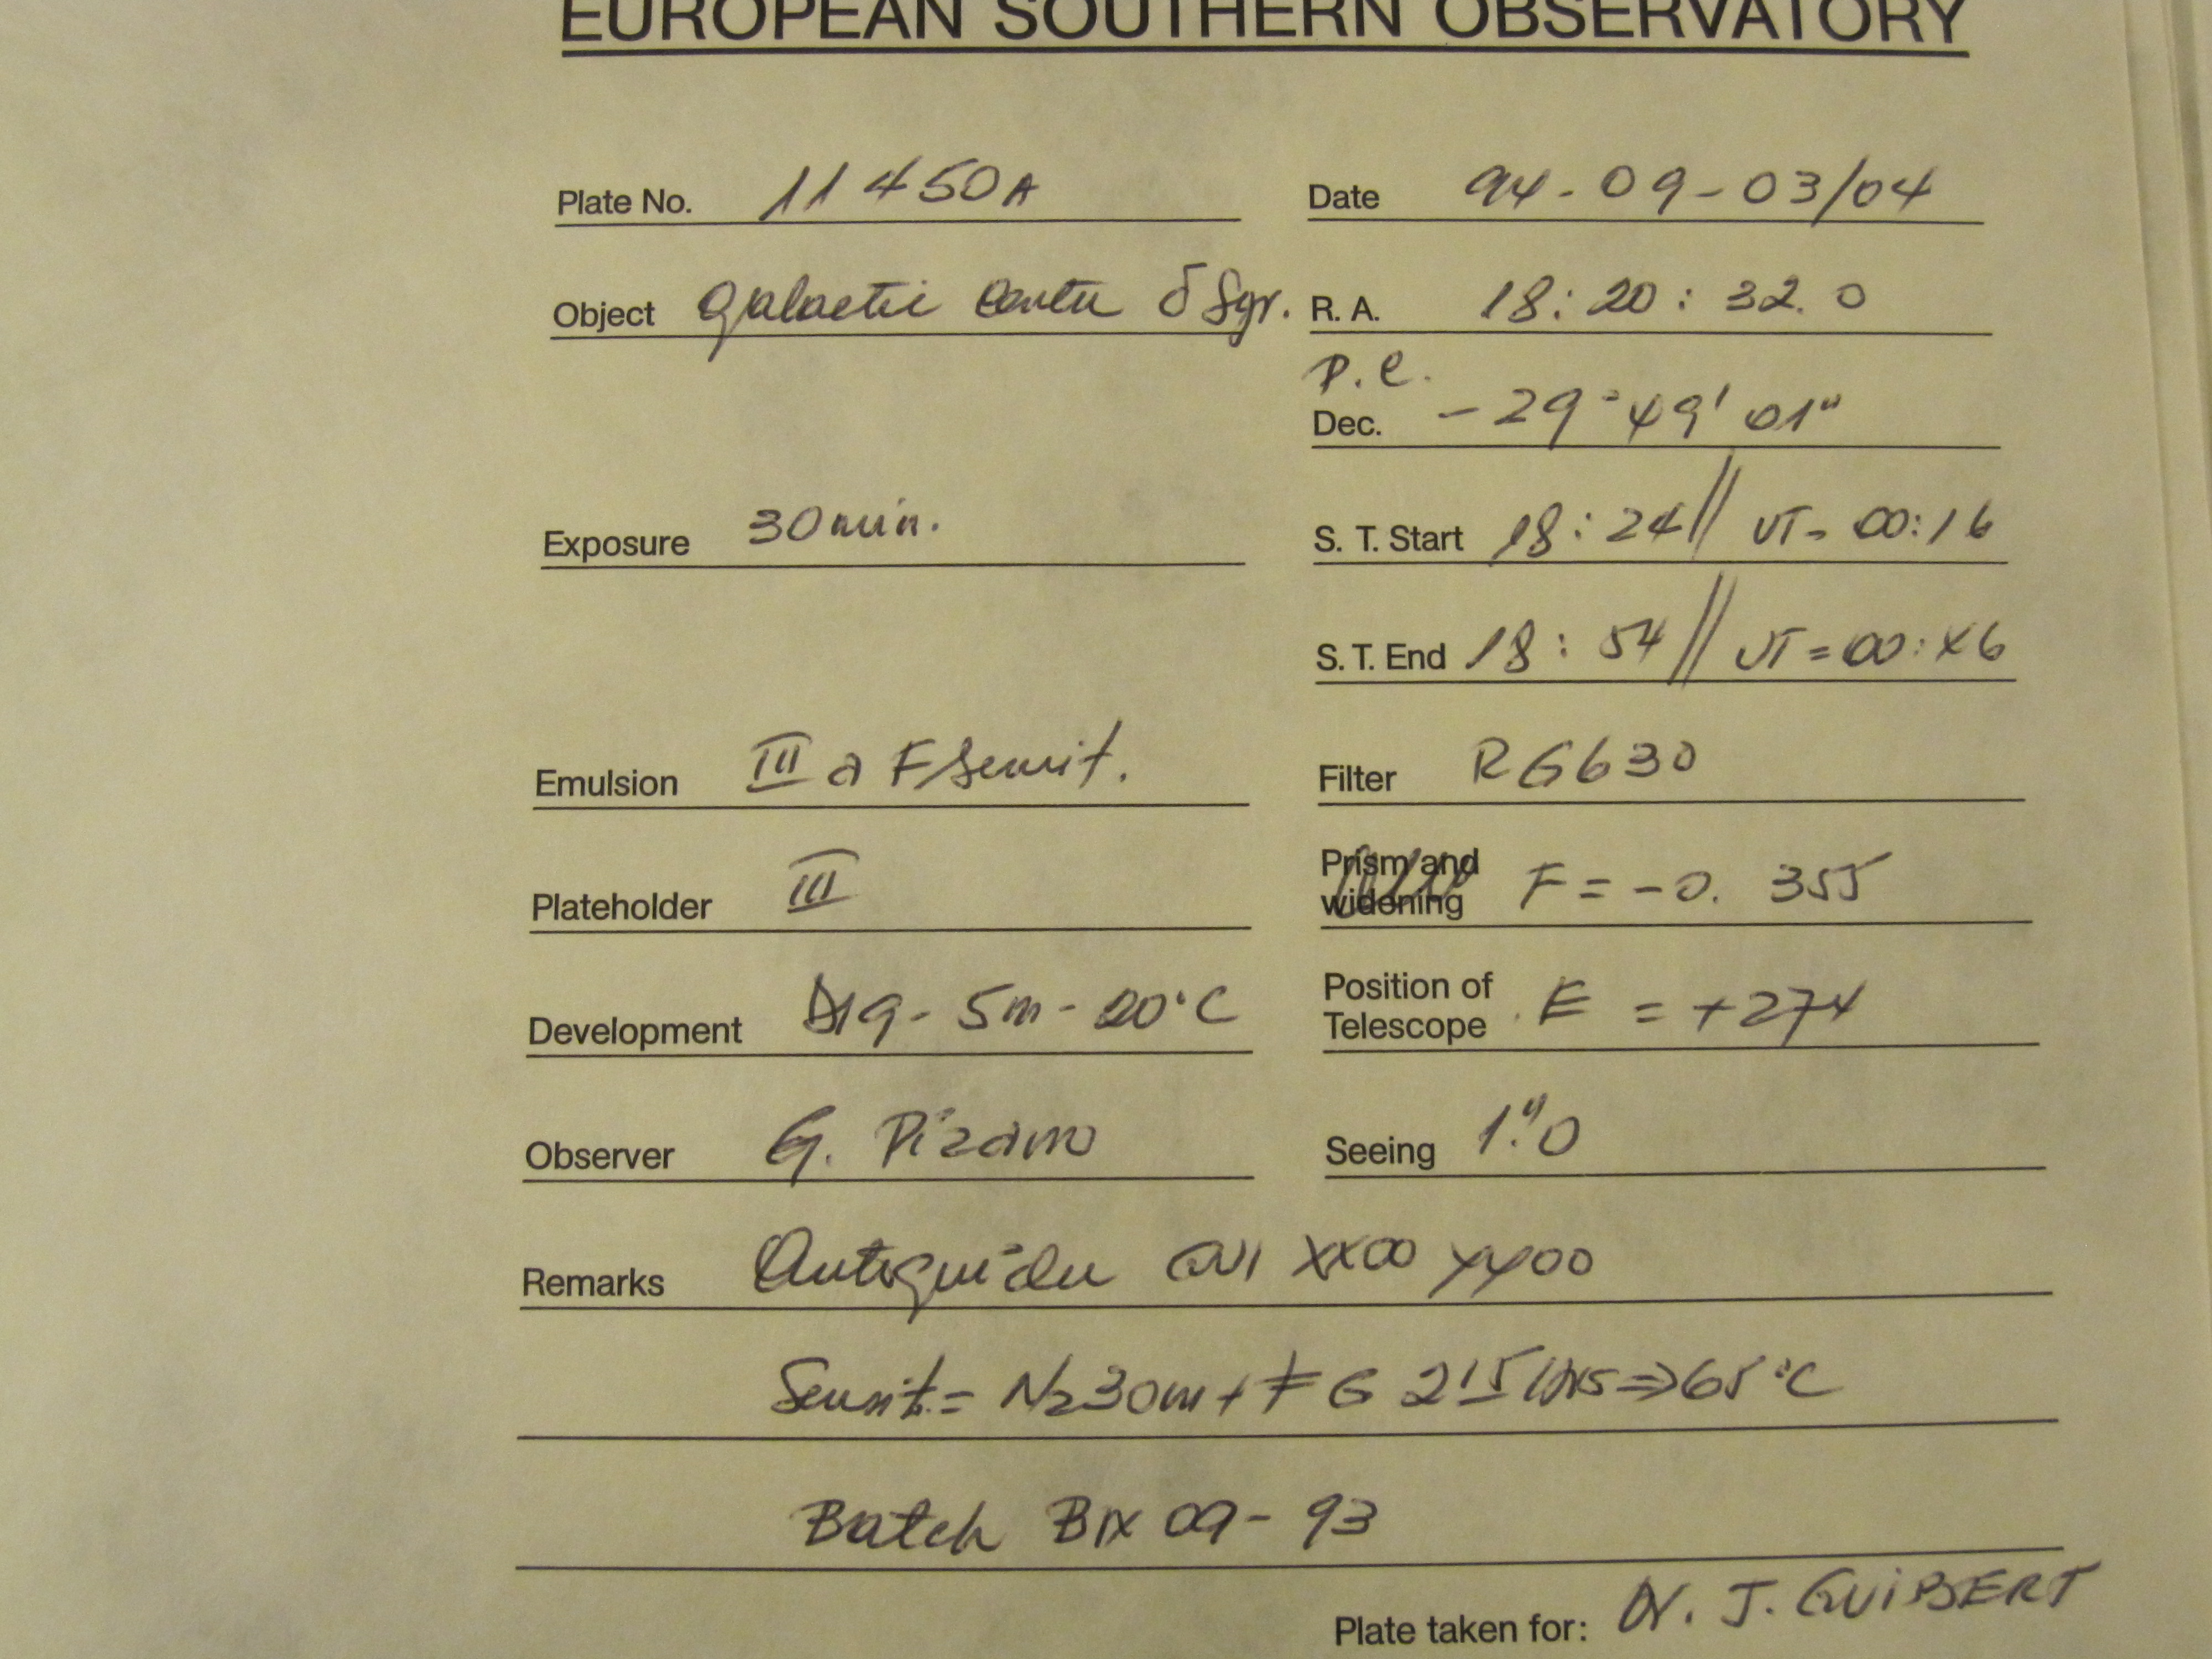 EUROPEAN SOUTHERN OBSERVATORY
Plate No. 11450A
Date 94-09-03/04
Object Galactic Centre δ Sgr.
R. A. 18:20:32.0
P.e.
Dec. -29°49'01"
Exposure 30min.
S. T. Start 18:24// UT= 00:16
S. T. End 18:54// UT=00:46
Emulsion III a F Sensit.
Filter RG630
Plateholder III
Prism and widening F=-0.355
Development D19-5m-20°C
Position of Telescope E = +274
Observer G. Pizarro
Seeing 1."0
Remarks Autoguider XX00 YY00
Sensit.= N2 30m + FG 215 Hrs⇒65°C
Batch B1X 09-93
Plate taken for: J. GUIBERT